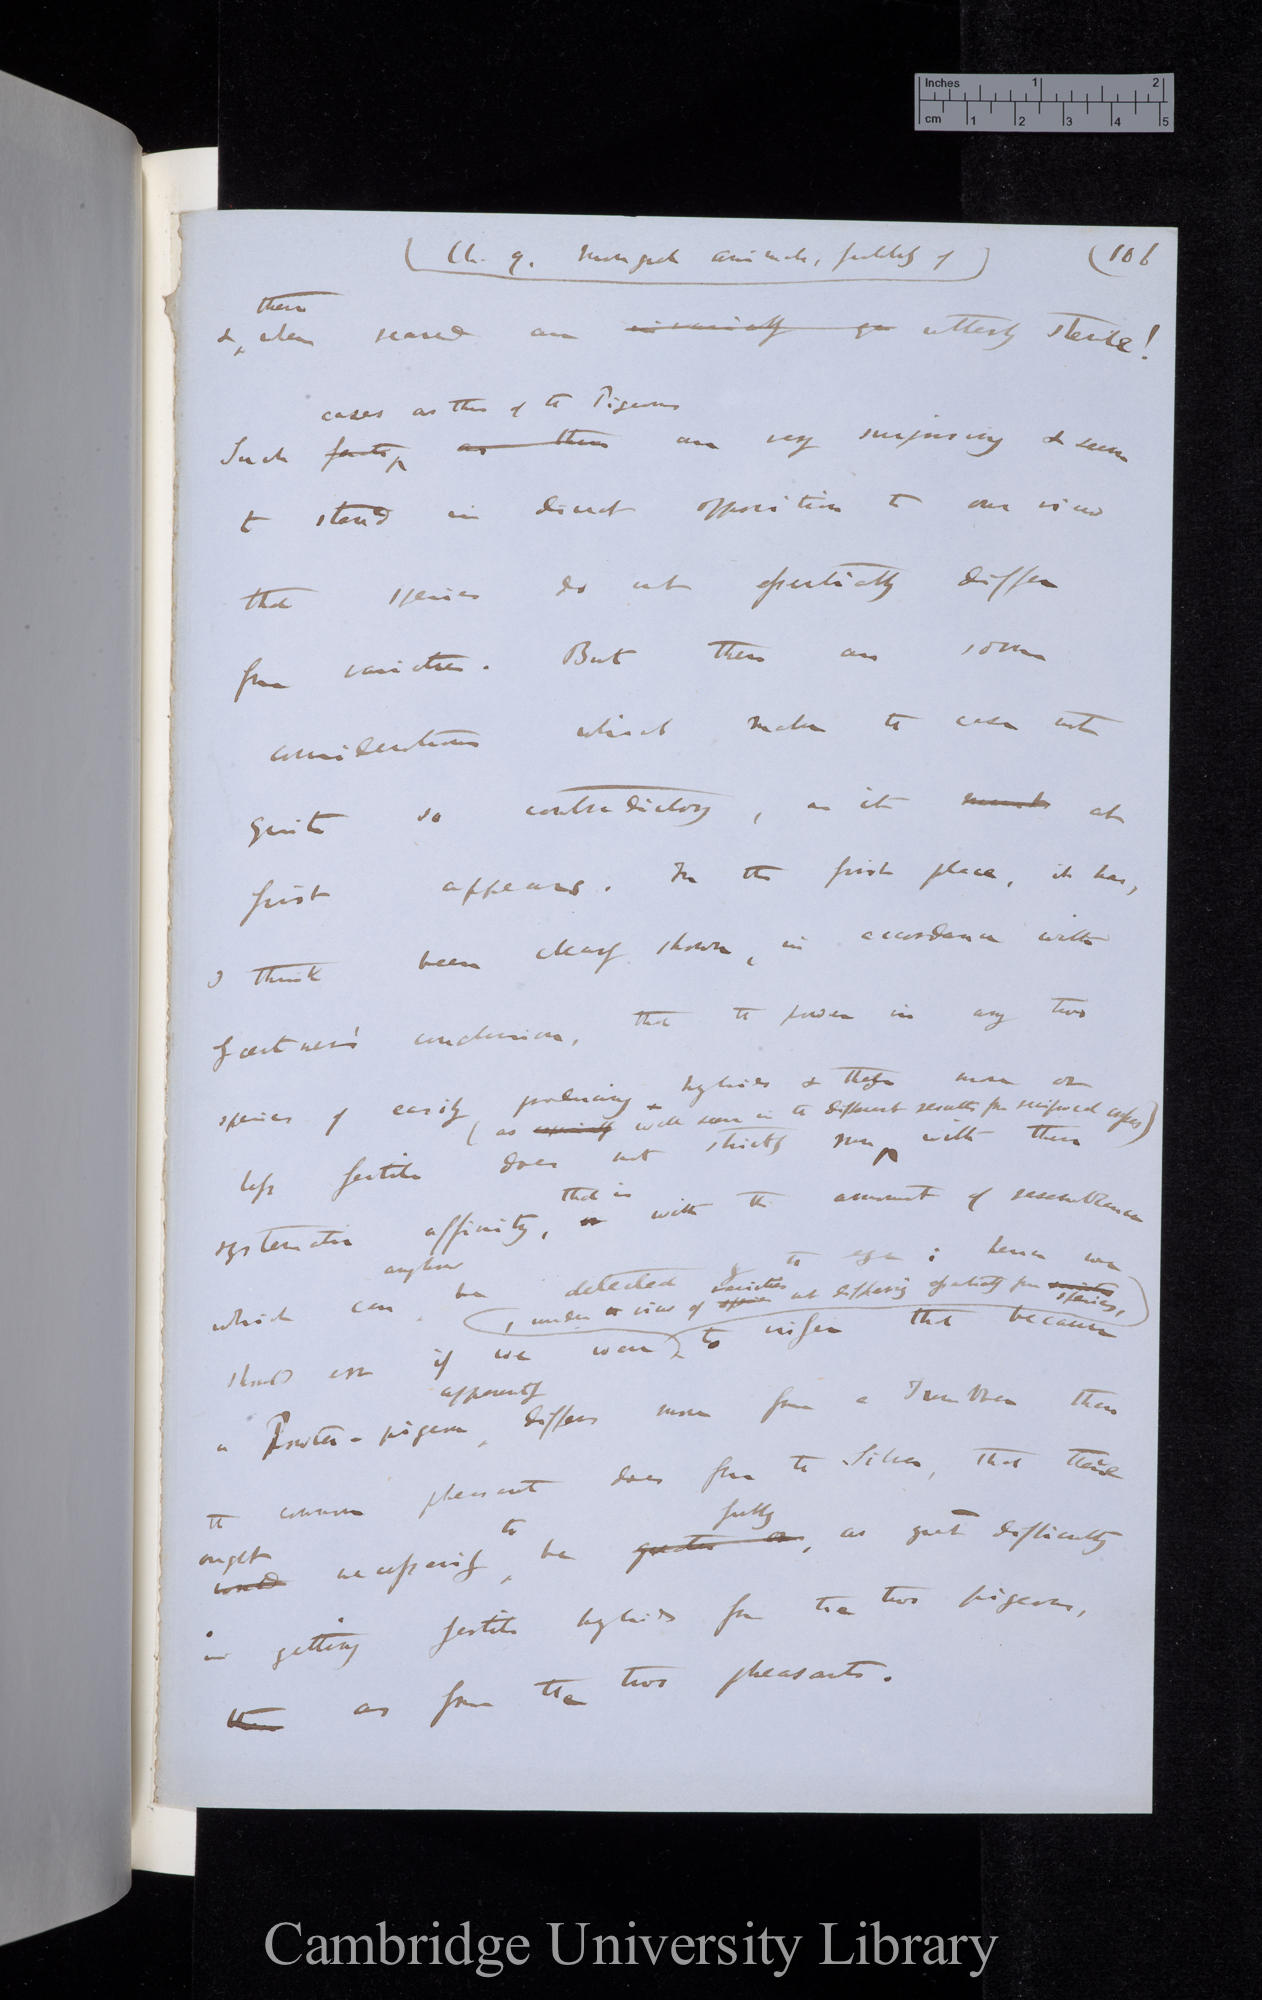 Inches 1 2
cm 1 2 3 4 5
(Ch. 9. Mongrel animals, fertility of) (106
these
& when reared are invariably utterly sterile!
cases as this of the Pigeons
Such facts as these are very surprising & seem
to stand in direct opposition to our view
that species do not essentially differ
from varieties. But there are some
considerations which make the case not
quite so contradictory, as it at
first appears. In the first place, it has,
I think been clearly shown, in accordance with
Gærtner's conclusion, that the power in any two
species of easily producing hybrids & these more or
(as especially well seen in the different results from reciprocal crosses)
less fertile does not strictly run with their
that is
systematic affinity, or with the amount of resemblance
anyhow
which can be detected by the eye: hence we
, under the view of species varieties not differing essentially from species,
should err if we were to infer that because
apparently
a Pouter-pigeon, differs more from a Tumbler than
the common pheasant does from the Silver, that there
ought to fully
would necessarily be greater or, as great difficulty
in getting fertile hybrids from the two pigeons,
than as from the two pheasants.
Cambridge University Library